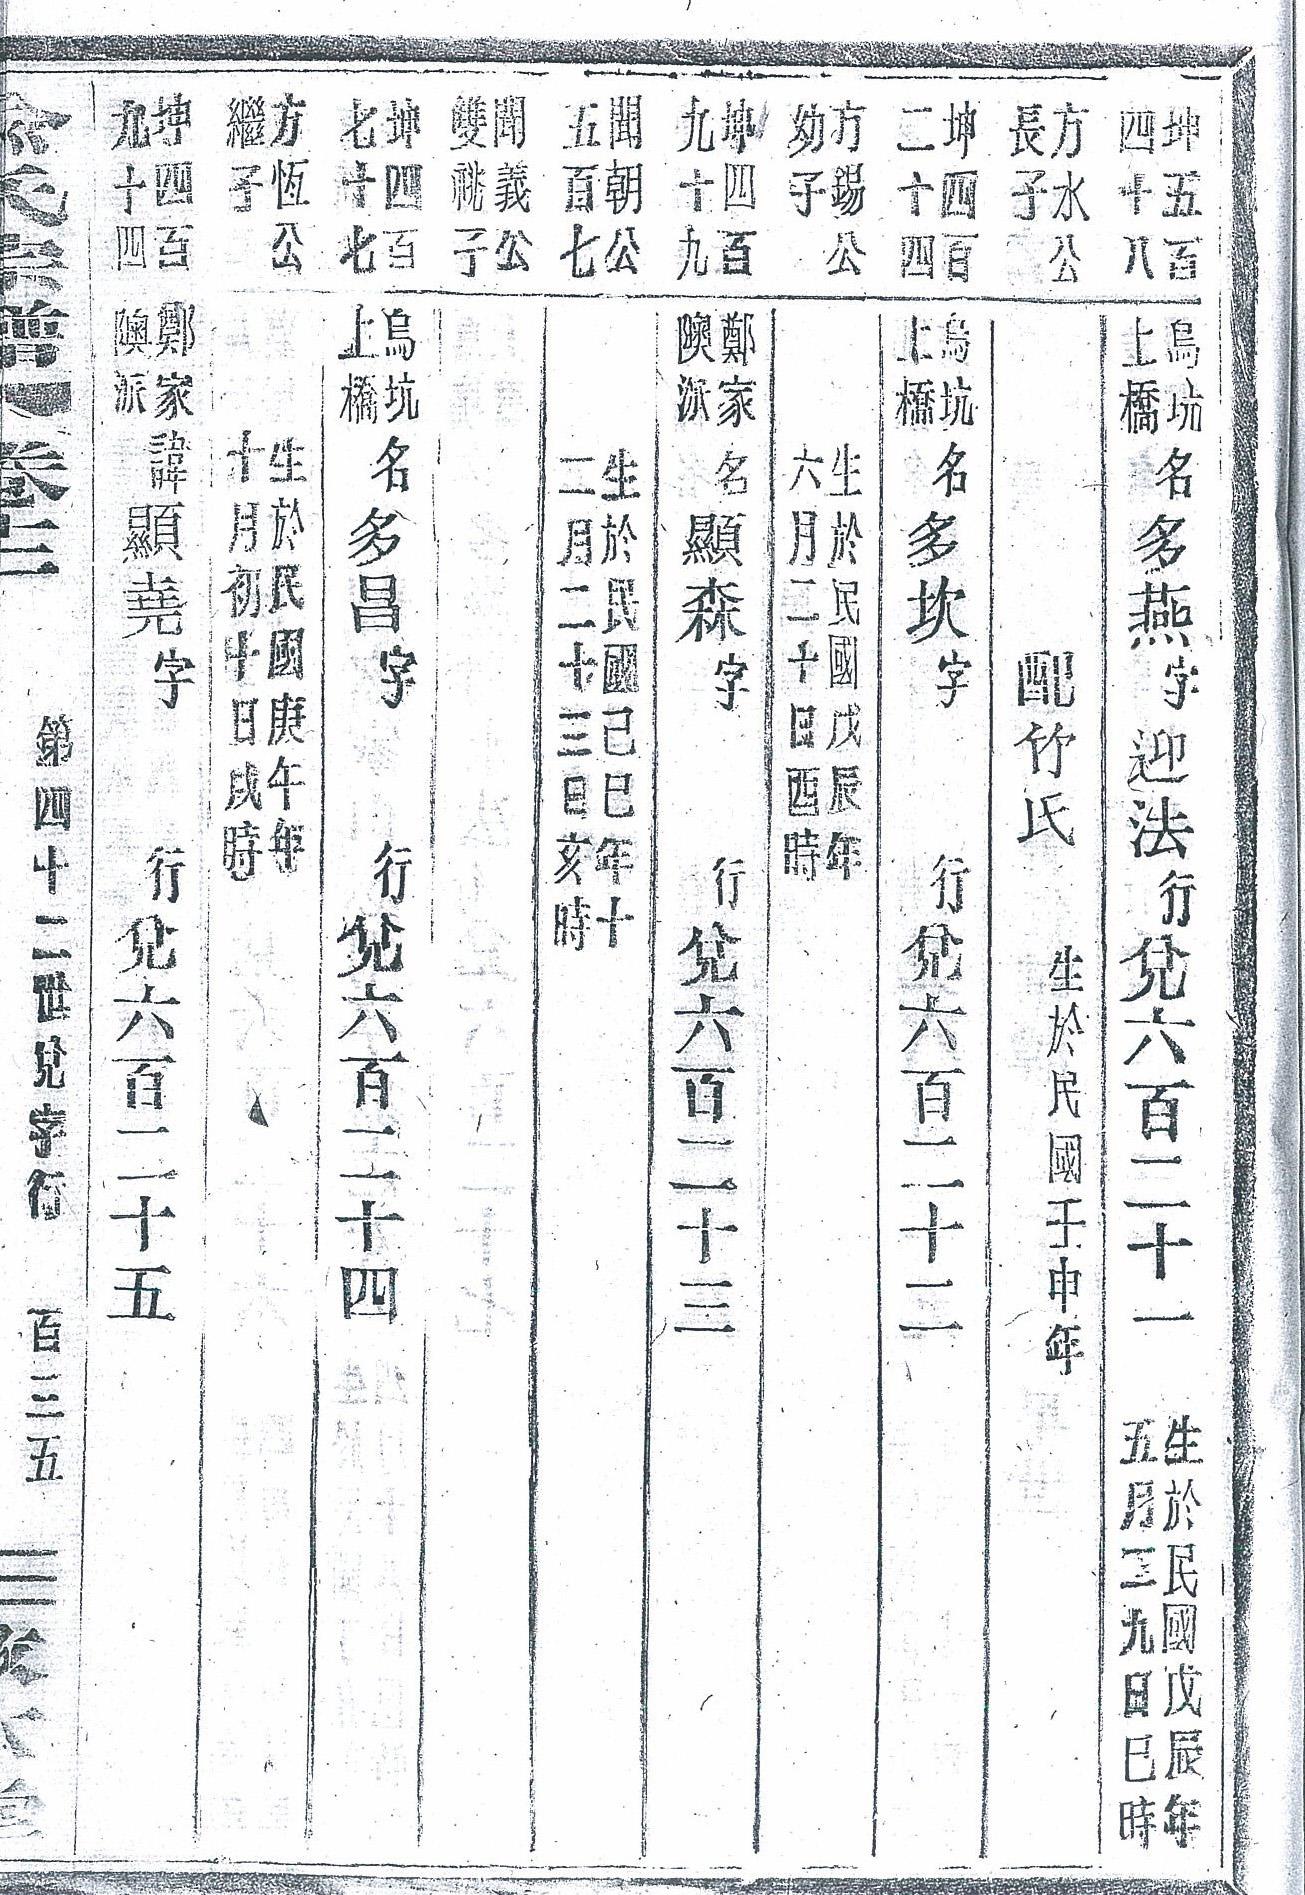 坤五百
四十八
烏坑
上橋
名多燕字迎法行兌六百二十一
生於民國戊辰年
五月三九日巳時
方水公
長子
配竹氏
生於民國壬申年
坤四百
二十四
烏坑
上橋
名多坎字
行兌六百二十二
方錫公
幼子
生於民國戊辰年
六月二十日酉時
坤四百
九十九
鄭家
隩派
名顯森字
行兌六百二十三
聞朝公
五百七
生於民國己巳年十
二月二十三日亥時
聞義公
雙祧子
坤四百
七十七
烏坑
上橋
名多昌字
行兌六百二十四
方恆公
繼子
生於民國庚午年
十月初十日戌時
坤四百
九十四
鄭家
隩派
諱顯堯字
行兌六百二十五
氏宗譜
卷十二
第四十二世兌字行
百三五